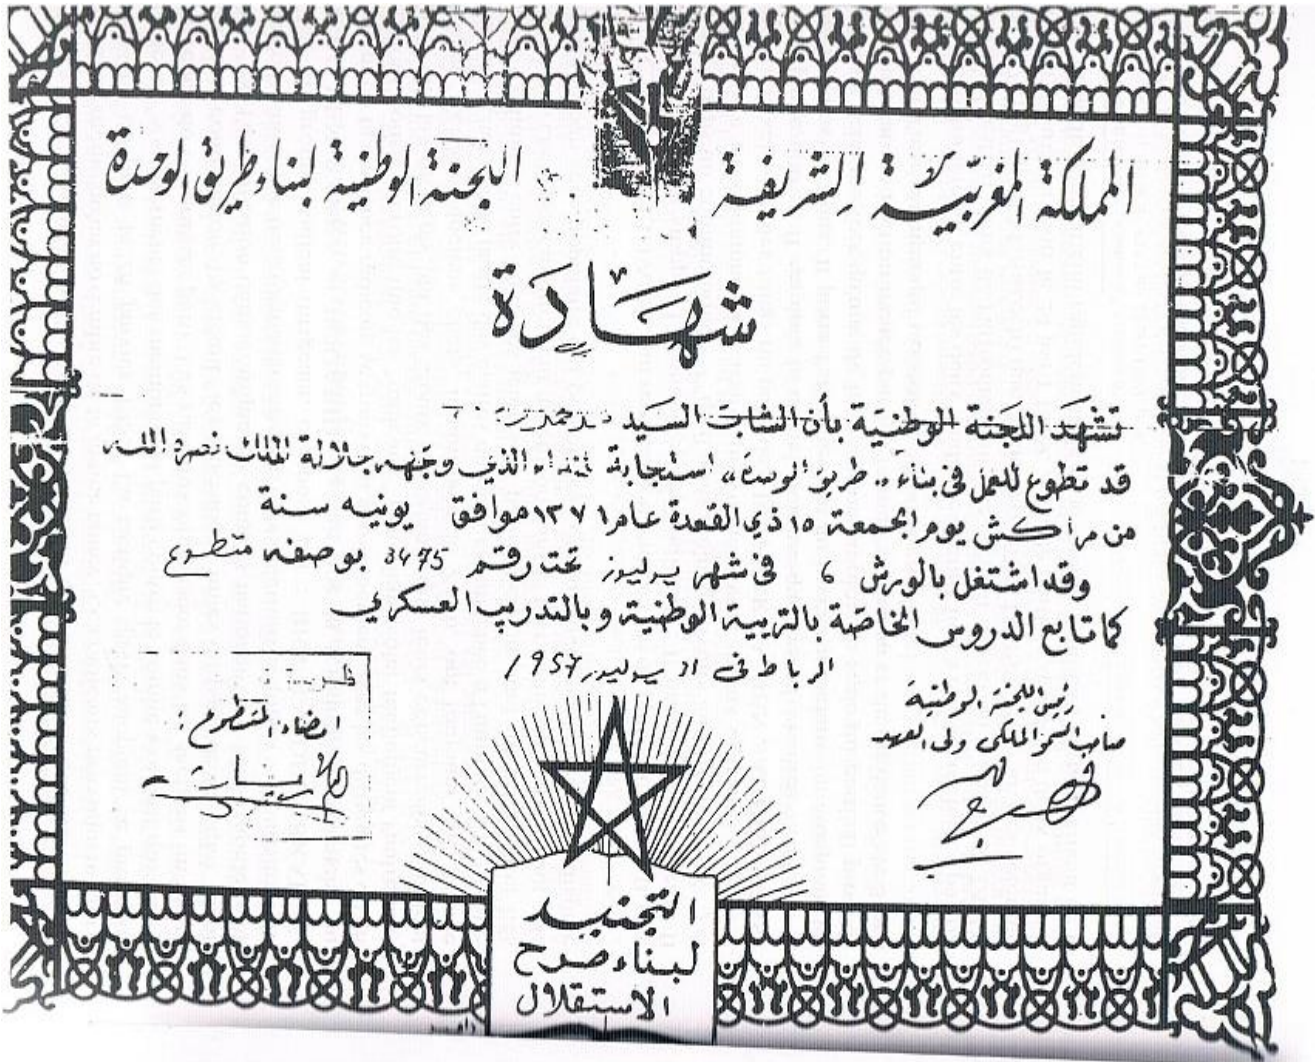 المملكة المغربية الشريفة
اللجنة الوطنية لبناء طريق الوحدة
شهادة
تشهد اللجنة الوطنية بأن الشاب السيد
قد تطوع للعمل فى بناء ,, طريق الوحدة,, استجابة لنداء الذي وجهه جلالة الملك نصره الله
من مراكش يوم الجمعة ١٥ ذي القعدة عام ١٣٧٦ موافق يونيه سنة
وقد اشتغل بالورش 6 فى شهر يوليوز تحت رقم 3475 بوصفه متطوع
كما تابع الدروس الخاصة بالتربية الوطنية وبالتدريب العسكري
الرباط فى 31 يوليوز 1957
رئيس اللجنة الوطنية
صاحب السمو الملكى ولى العهد
امضاء المتطوع:
التجنيد
لبناء صرح
الاستقلال